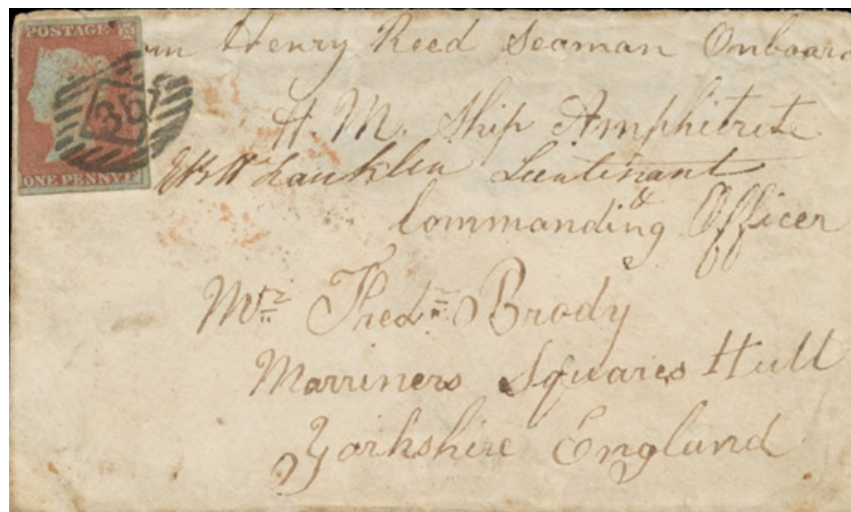 POSTAGE
ONE PENNY F
357
Henry Reed Seaman Onboard
H. M. Ship Amphitrite
Lieutenant
& Commanding Officer
Mr Fred Brody
Marriners Squares Hull
Yorkshire England